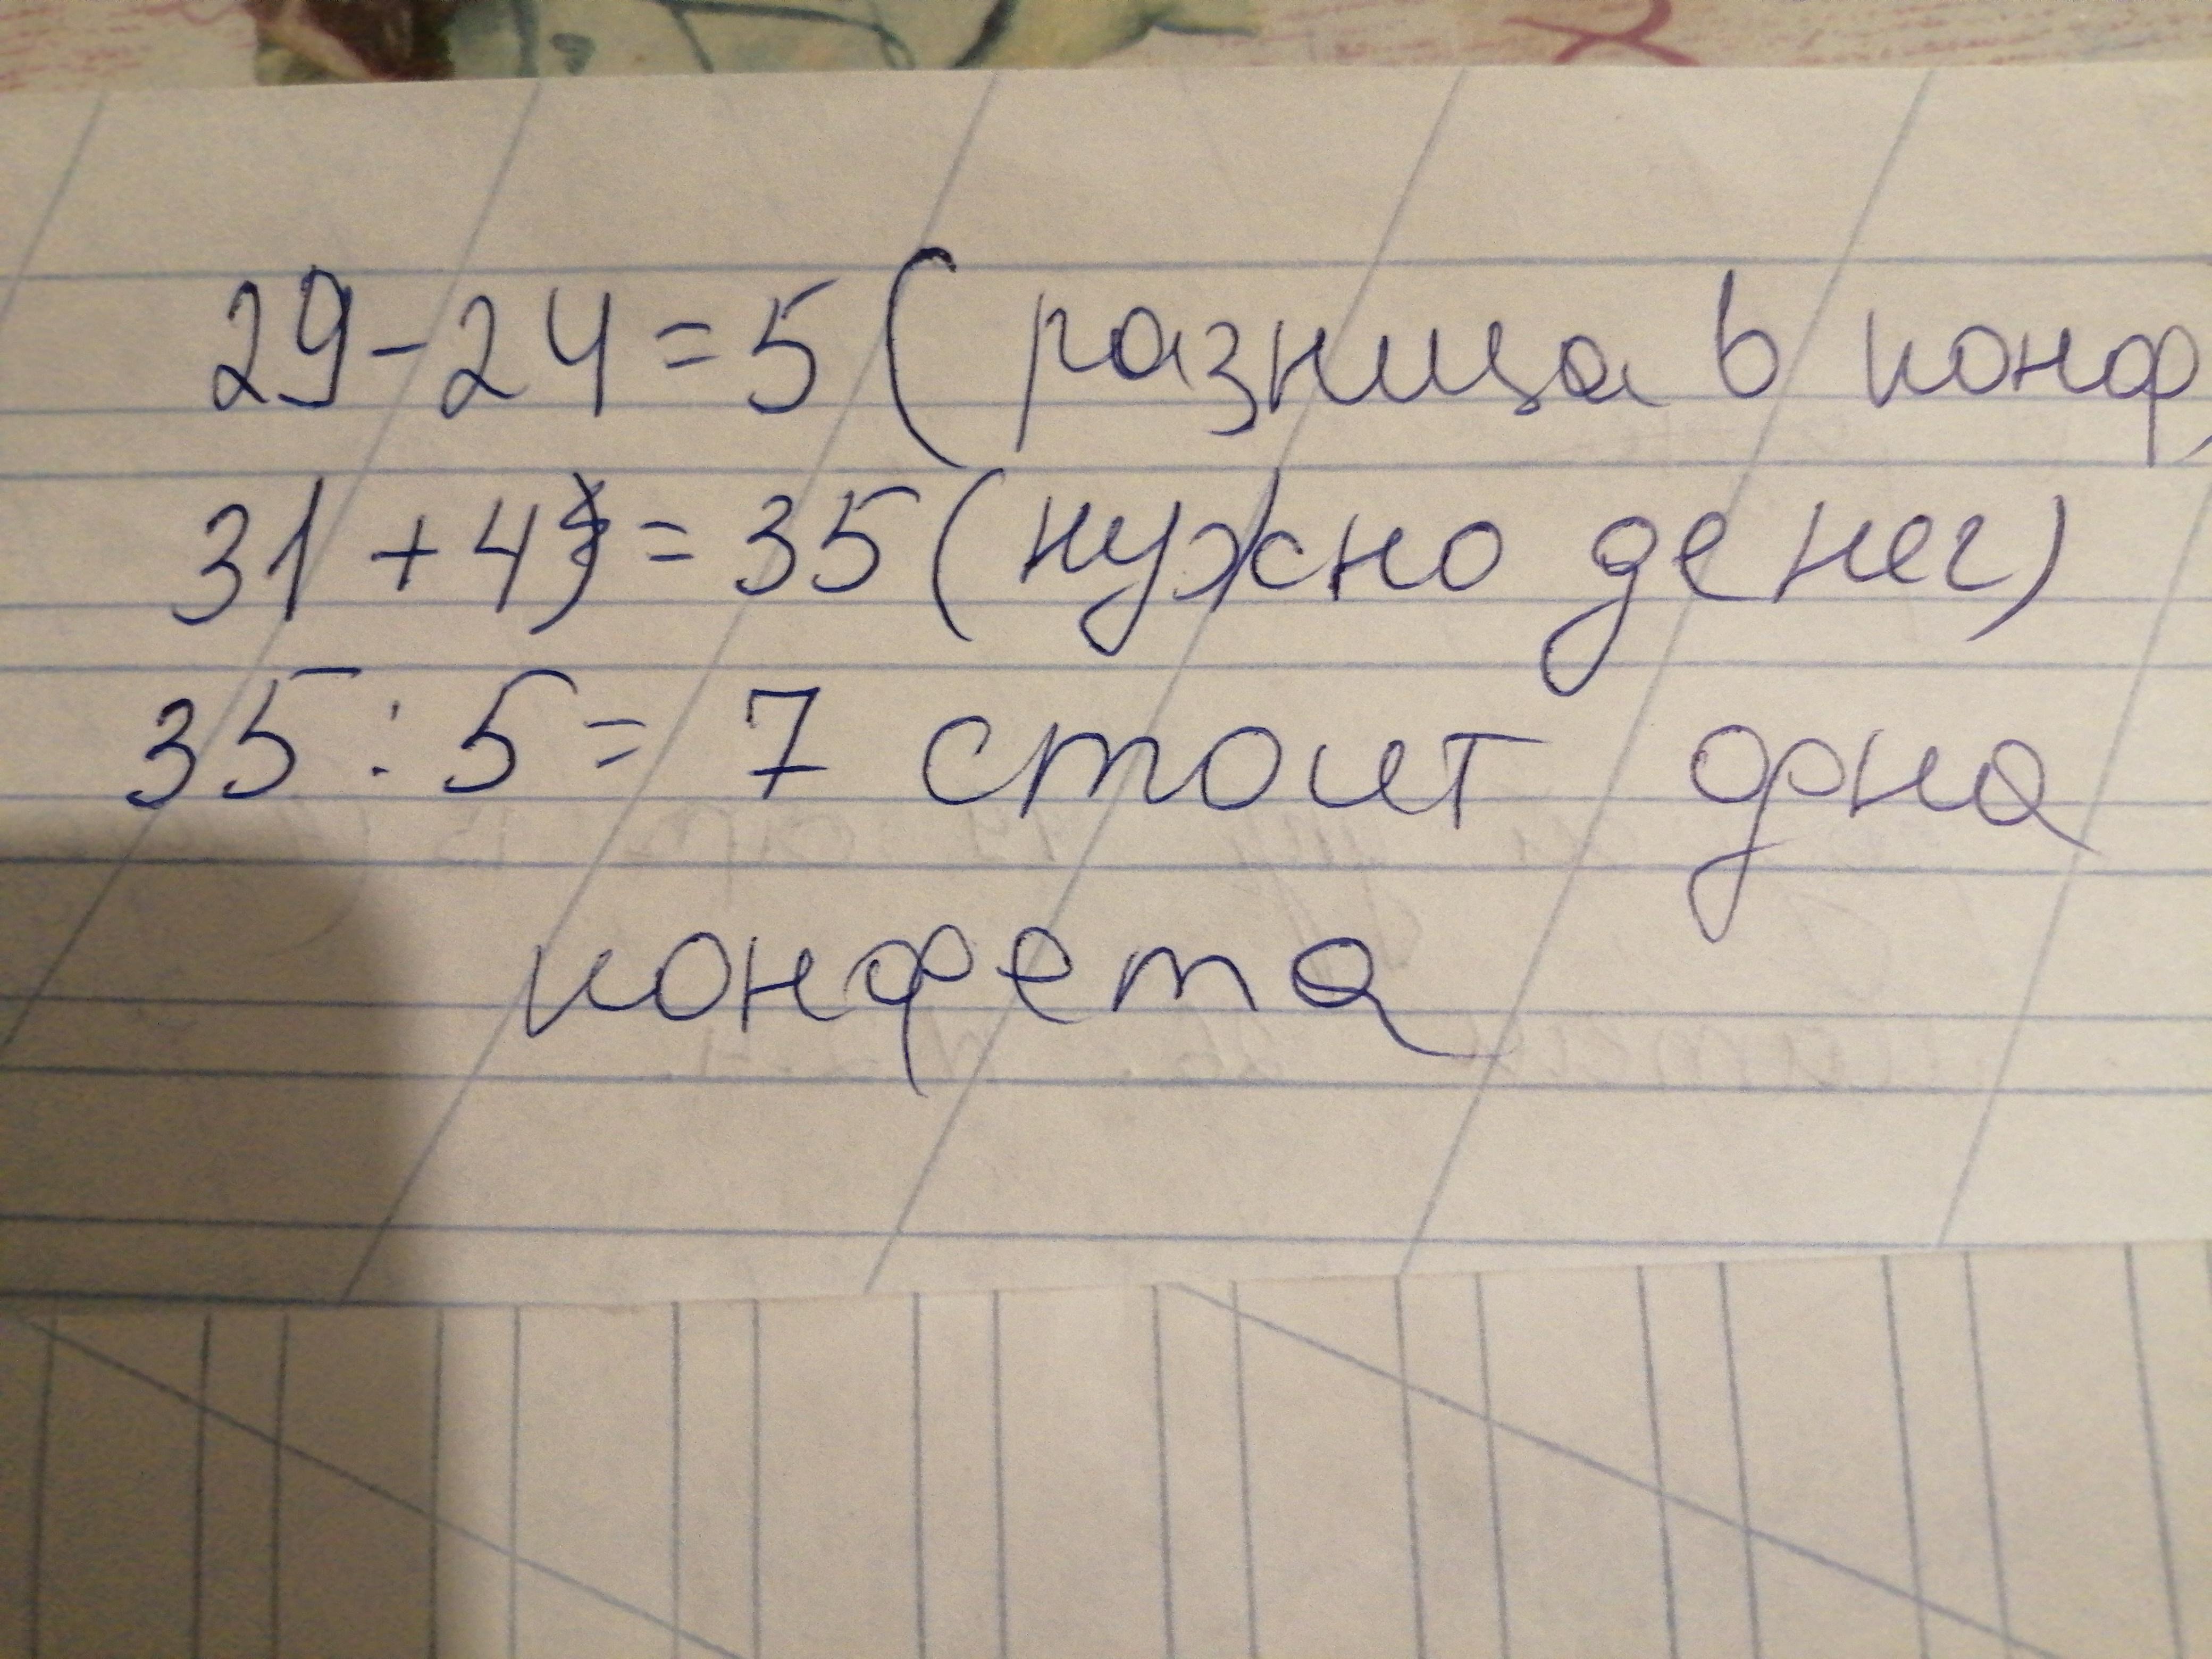 29-24=5 (разница в конф,
31+4=35 (нужно денег)
35:5=7 стоит одна
конфета